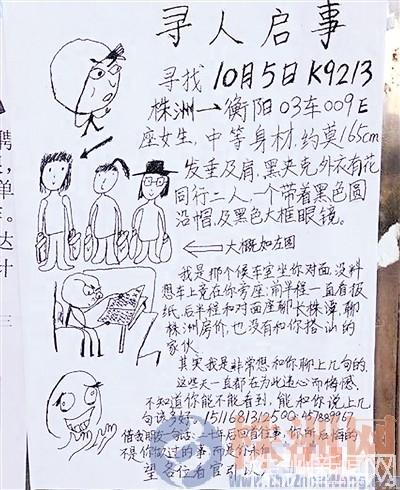 寻人启事
寻找10月5日K9213
株洲→衡阳03车009E
座女生,中等身材,约莫165cm
发垂及肩,黑夹克,外衣有花
同行二人,一个带着黑色圆
沿帽,及黑色大框眼镜。
大概如左图
我是那个候车室坐你对面,没料
想车上竟在你旁座,前半程一直看报
纸,后半程和对面座聊长株潭,聊
株洲房价,也没有和你搭讪的
家伙.
其实我是非常想和你聊上几句的.
这些天一直都在为此违心而悔憾.
不知道你能不能看到,能和你说上几
句该多好.
借我朋友一句话:二十年后回首往事,你所后悔的
不是你做过的事,而是
望各位看官
聘
单
达
计
三